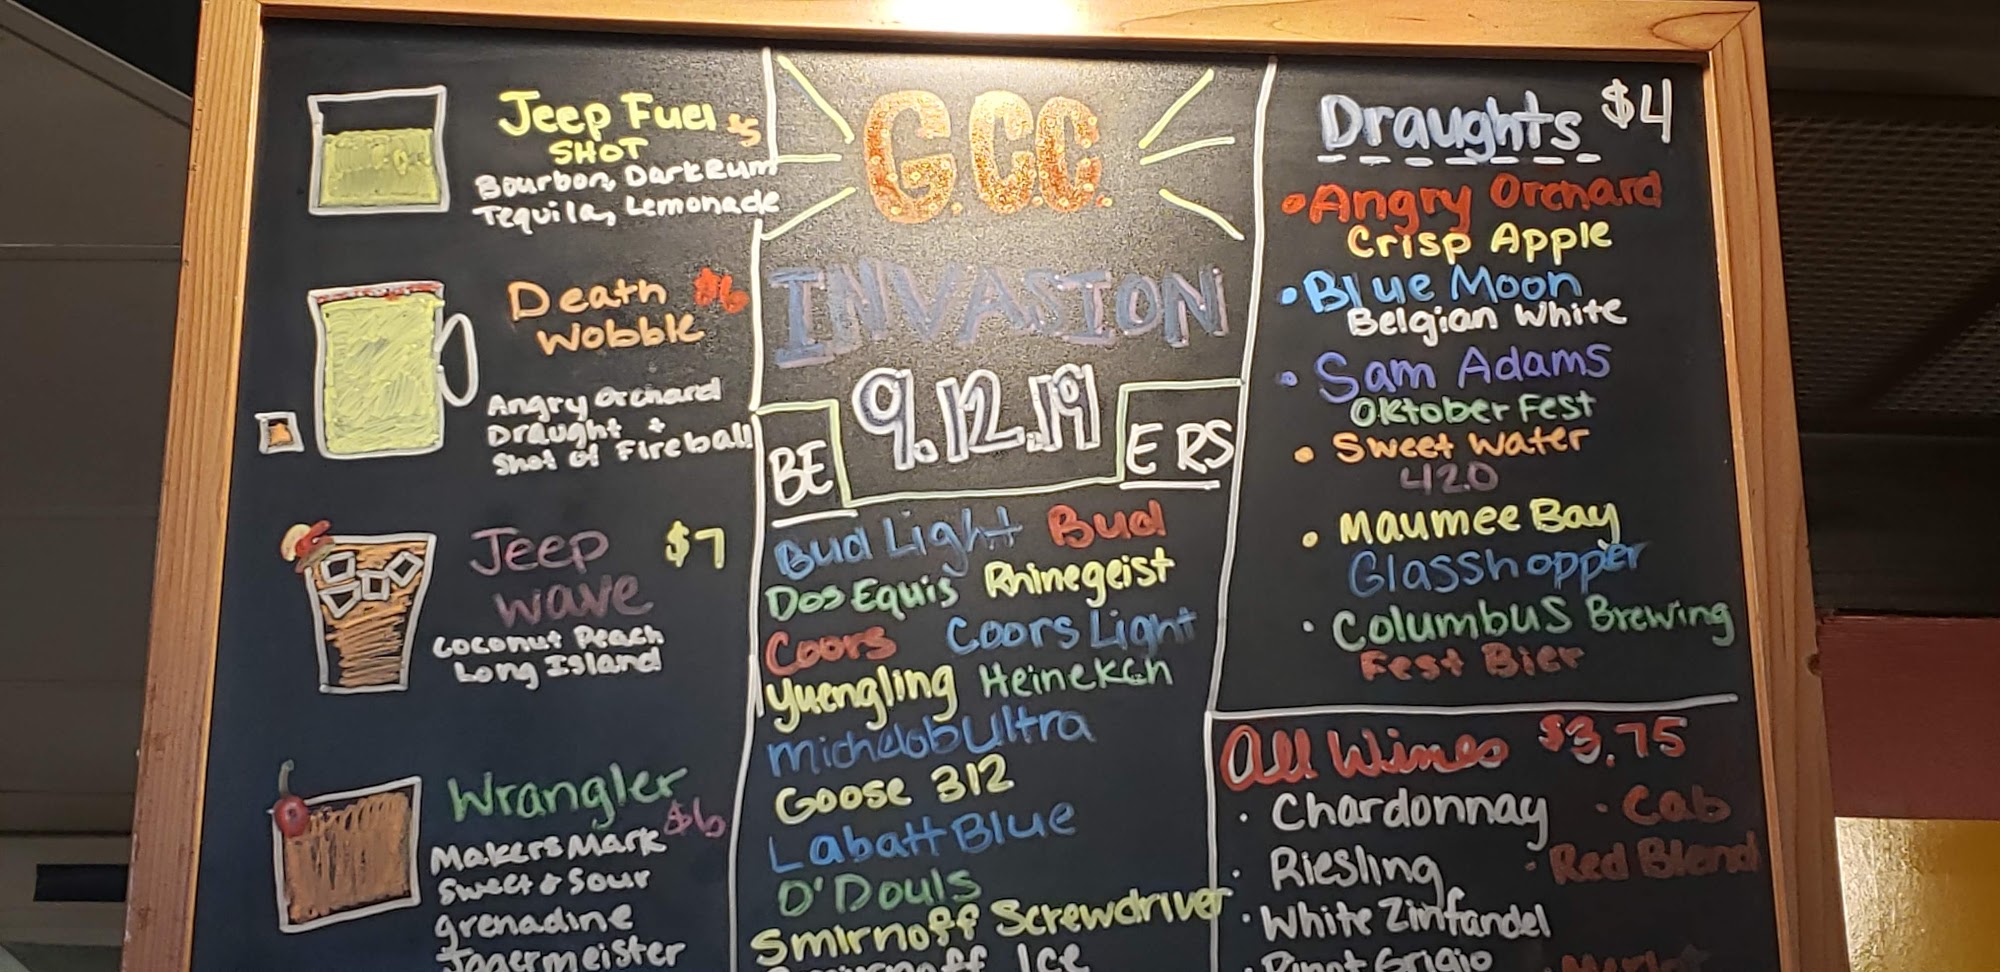 Jeep Fuel $5
SHOT
Bourbon, Dark Rum
Tequila, Lemonade
Death $6
Wobble
Angry Orchard
Draught +
Shot of Fireball
Jeep $7
Wave
Coconut Peach
Long Island
Wrangler
$6
Makers Mark
Sweet & Sour
grenadine
Jagermeister
G.C.C.
INVASION
9.12.19
BEERS
Bud Light Bud
Dos Equis Rhinegeist
Coors Coors Light
Yuengling Heineken
Michelob Ultra
Goose 312
Labatt Blue
O'Douls
Smirnoff Screwdriver
Smirnoff Ice
Draughts $4
• Angry Orchard
Crisp Apple
• Blue Moon
Belgian White
• Sam Adams
Oktober Fest
• Sweet Water
420
• Maumee Bay
Glasshopper
• Columbus Brewing
Fest Bier
All Wines $3.75
• Chardonnay • Cab
• Riesling • Red Blend
• White Zinfandel
• Pinot Grigio • Merlot